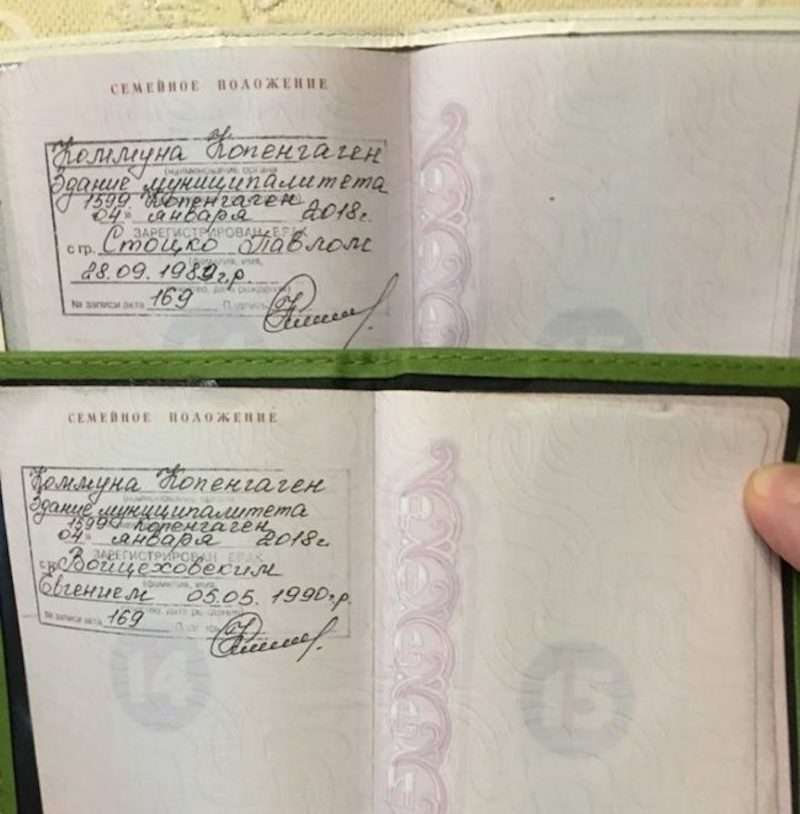 СЕМЕЙНОЕ ПОЛОЖЕНИЕ
Коммуна Копенгаген
(наименование органа
Здание муниципалитета
1599 Копенгаген
04 января 2018г.
ЗАРЕГИСТРИРОВАН БРАК
с гр. Стоцко Павлом
(фамилия, имя,
28.09.1989г.р.
дата рождения)
№ записи акта 169 Подпись
СЕМЕЙНОЕ ПОЛОЖЕНИЕ
Коммуна Копенгаген
Здание муниципалитета
1599 Копенгаген
04 января 2018г.
ЗАРЕГИСТРИРОВАН БРАК
с гр. Войцеховским
(фамилия, имя,
Евгением 05.05.1990г.р.
дата рождения)
№ записи акта 169
14
15